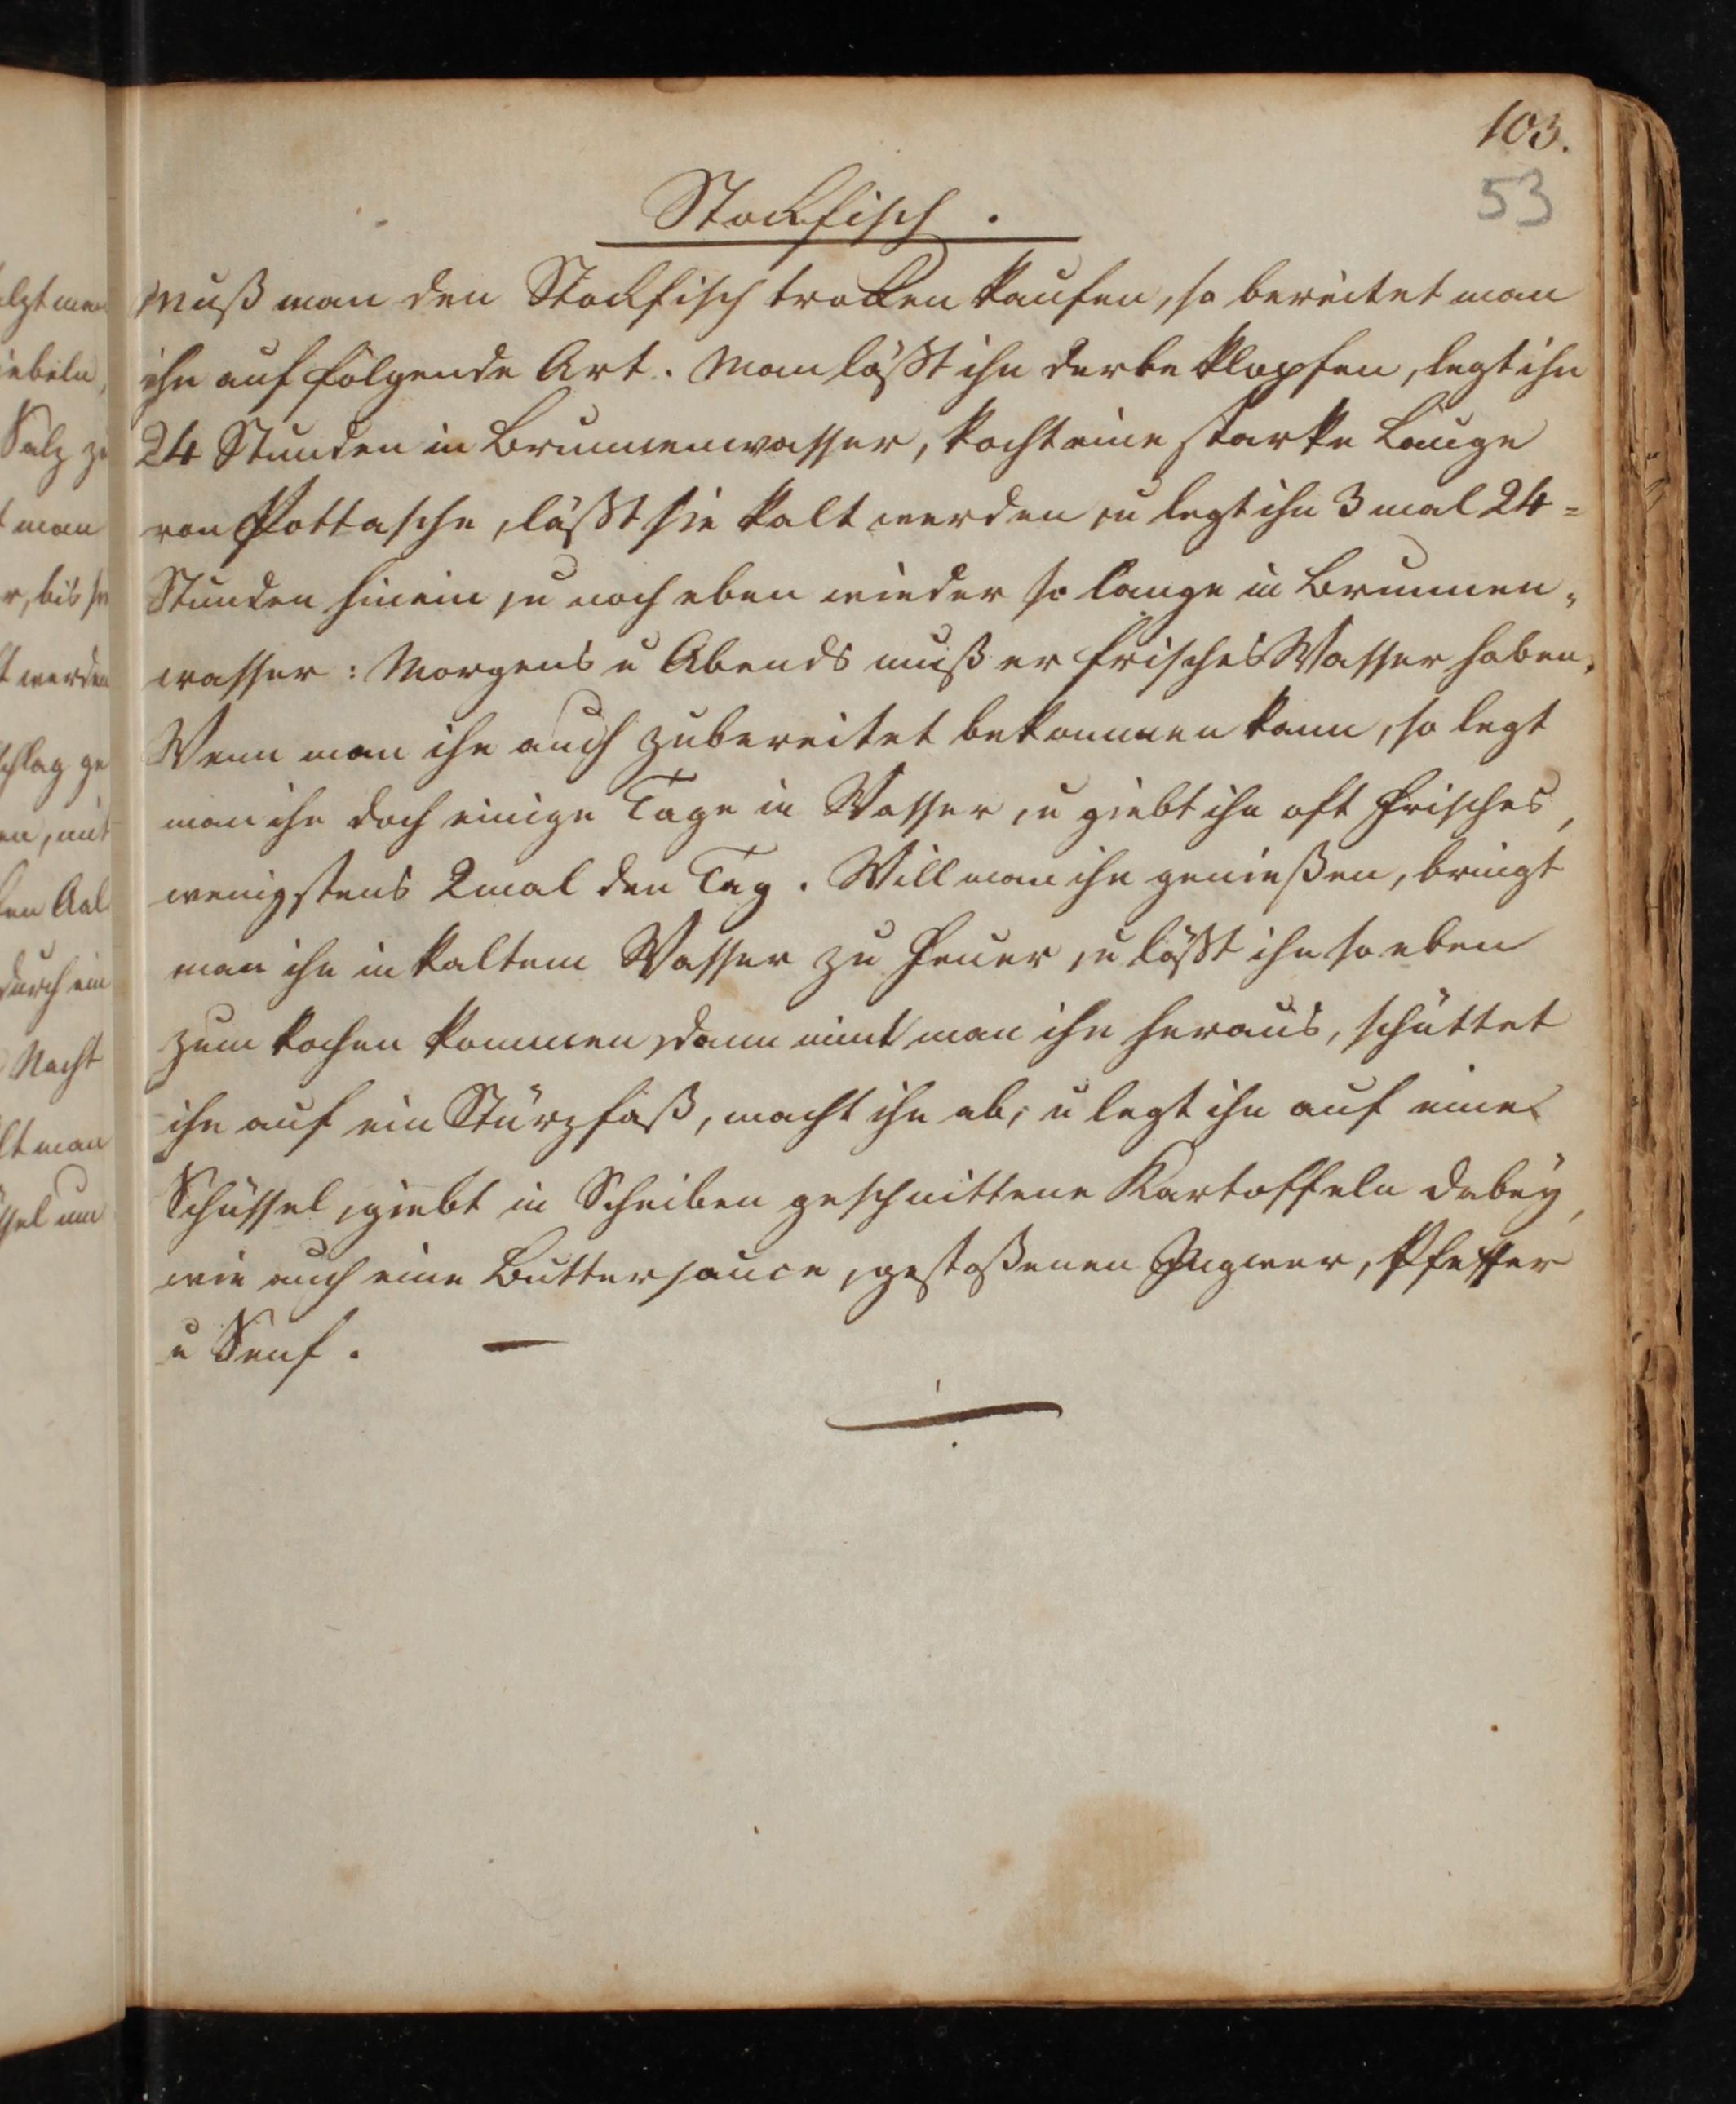 103.
53
Stockfisch.
Muß man den Stockfisch trocken kaufen, so bereitet man
ihn auf folgende Art. Man läßt ihn derbe klopfen, legt ihn
24 Stunden in Brunnenwasser, kocht eine starke Lauge
von Pottasche, läßt sie kalt werden, u legt ihn 3 mal 24 =
Stunden hinein, u noch eben wieder so lange in Brunnen„
wasser: Morgens u Abends muß er frisches Wasser haben.
Wenn man ihn auch zubereitet bekommen kann, so legt
man ihn doch einige Tage in Wasser, u giebt ihn oft frisches,
wenigstens 2mal den Tag. Will man ihn genießen, bringt
man ihn in kaltem Wasser zu Feuer, u läßt ihn so eben
zum kochen kommen, dann nimt man ihn heraus, schüttet
ihn auf ein Stürzfaß, macht ihn ab, u legt ihn auf eine
Schüssel, giebt in Scheiben geschnittene Kartoffeln dabey,
wie auch eine Buttersauce, gestoßenen Ingwer, Pfeffer
u Senf. —